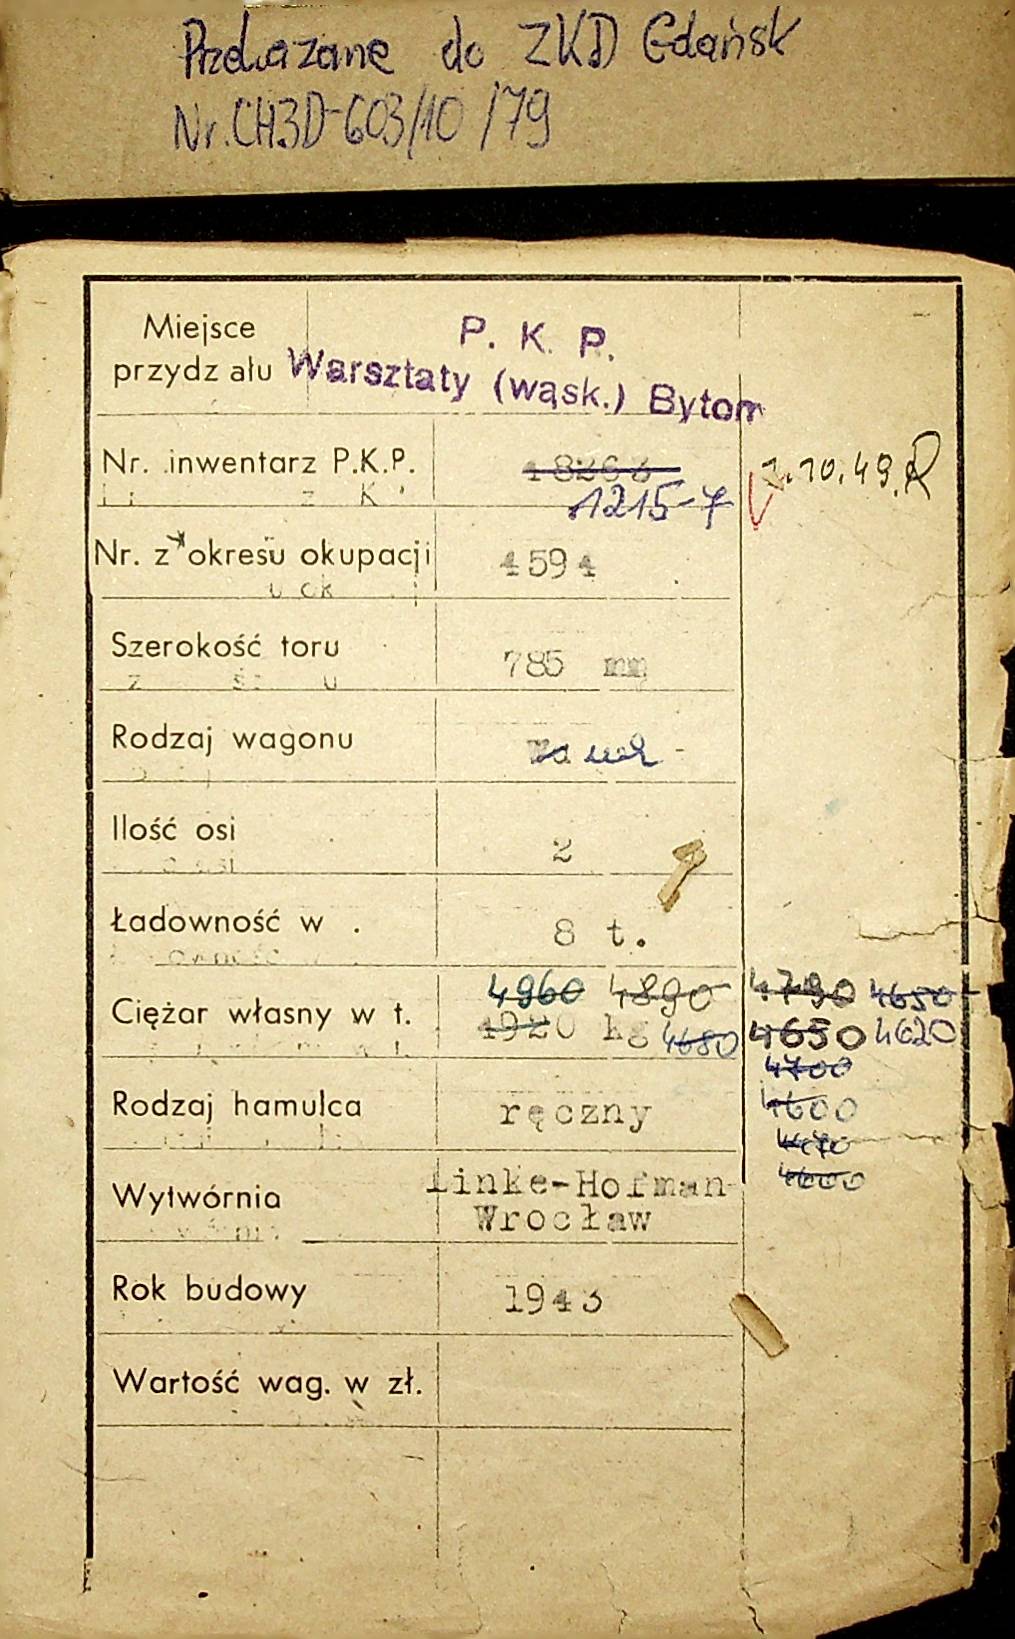 Przekazane do ZKD Gdańsk
Nr. CH3D-603/10 /79
Miejsce
przydz ału
P. K. P.
Warsztaty (wąsk.) Bytom
Nr. inwentarz P.K.P. 18263
1215-7
1.10.49.
Nr. z okresu okupacji 4594
Szerokość toru 785 mm
Rodzaj wagonu
Ilość osi 2
Ładowność w . 8 t.
Ciężar własny w t. 4960 4890 4790 4650
4920 kg 4680 4650 4620
4700
Rodzaj hamulca ręczny 4600
4600
Wytwórnia Linke-Hofman
Wrocław
Rok budowy 1943
Wartość wag. w zł.